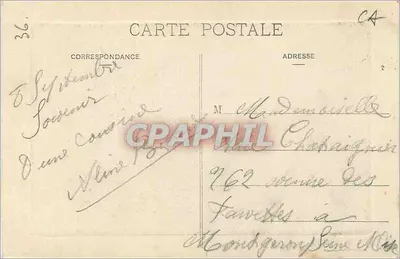 36.
CA
CARTE POSTALE
CORRESPONDANCE
ADRESSE
8 Septembre
Souvenir
d'une cousine
Aline
CPAPHIL
M Mademoiselle
Chataignier
262 avenue des
Fauvettes à
Montgeron Seine